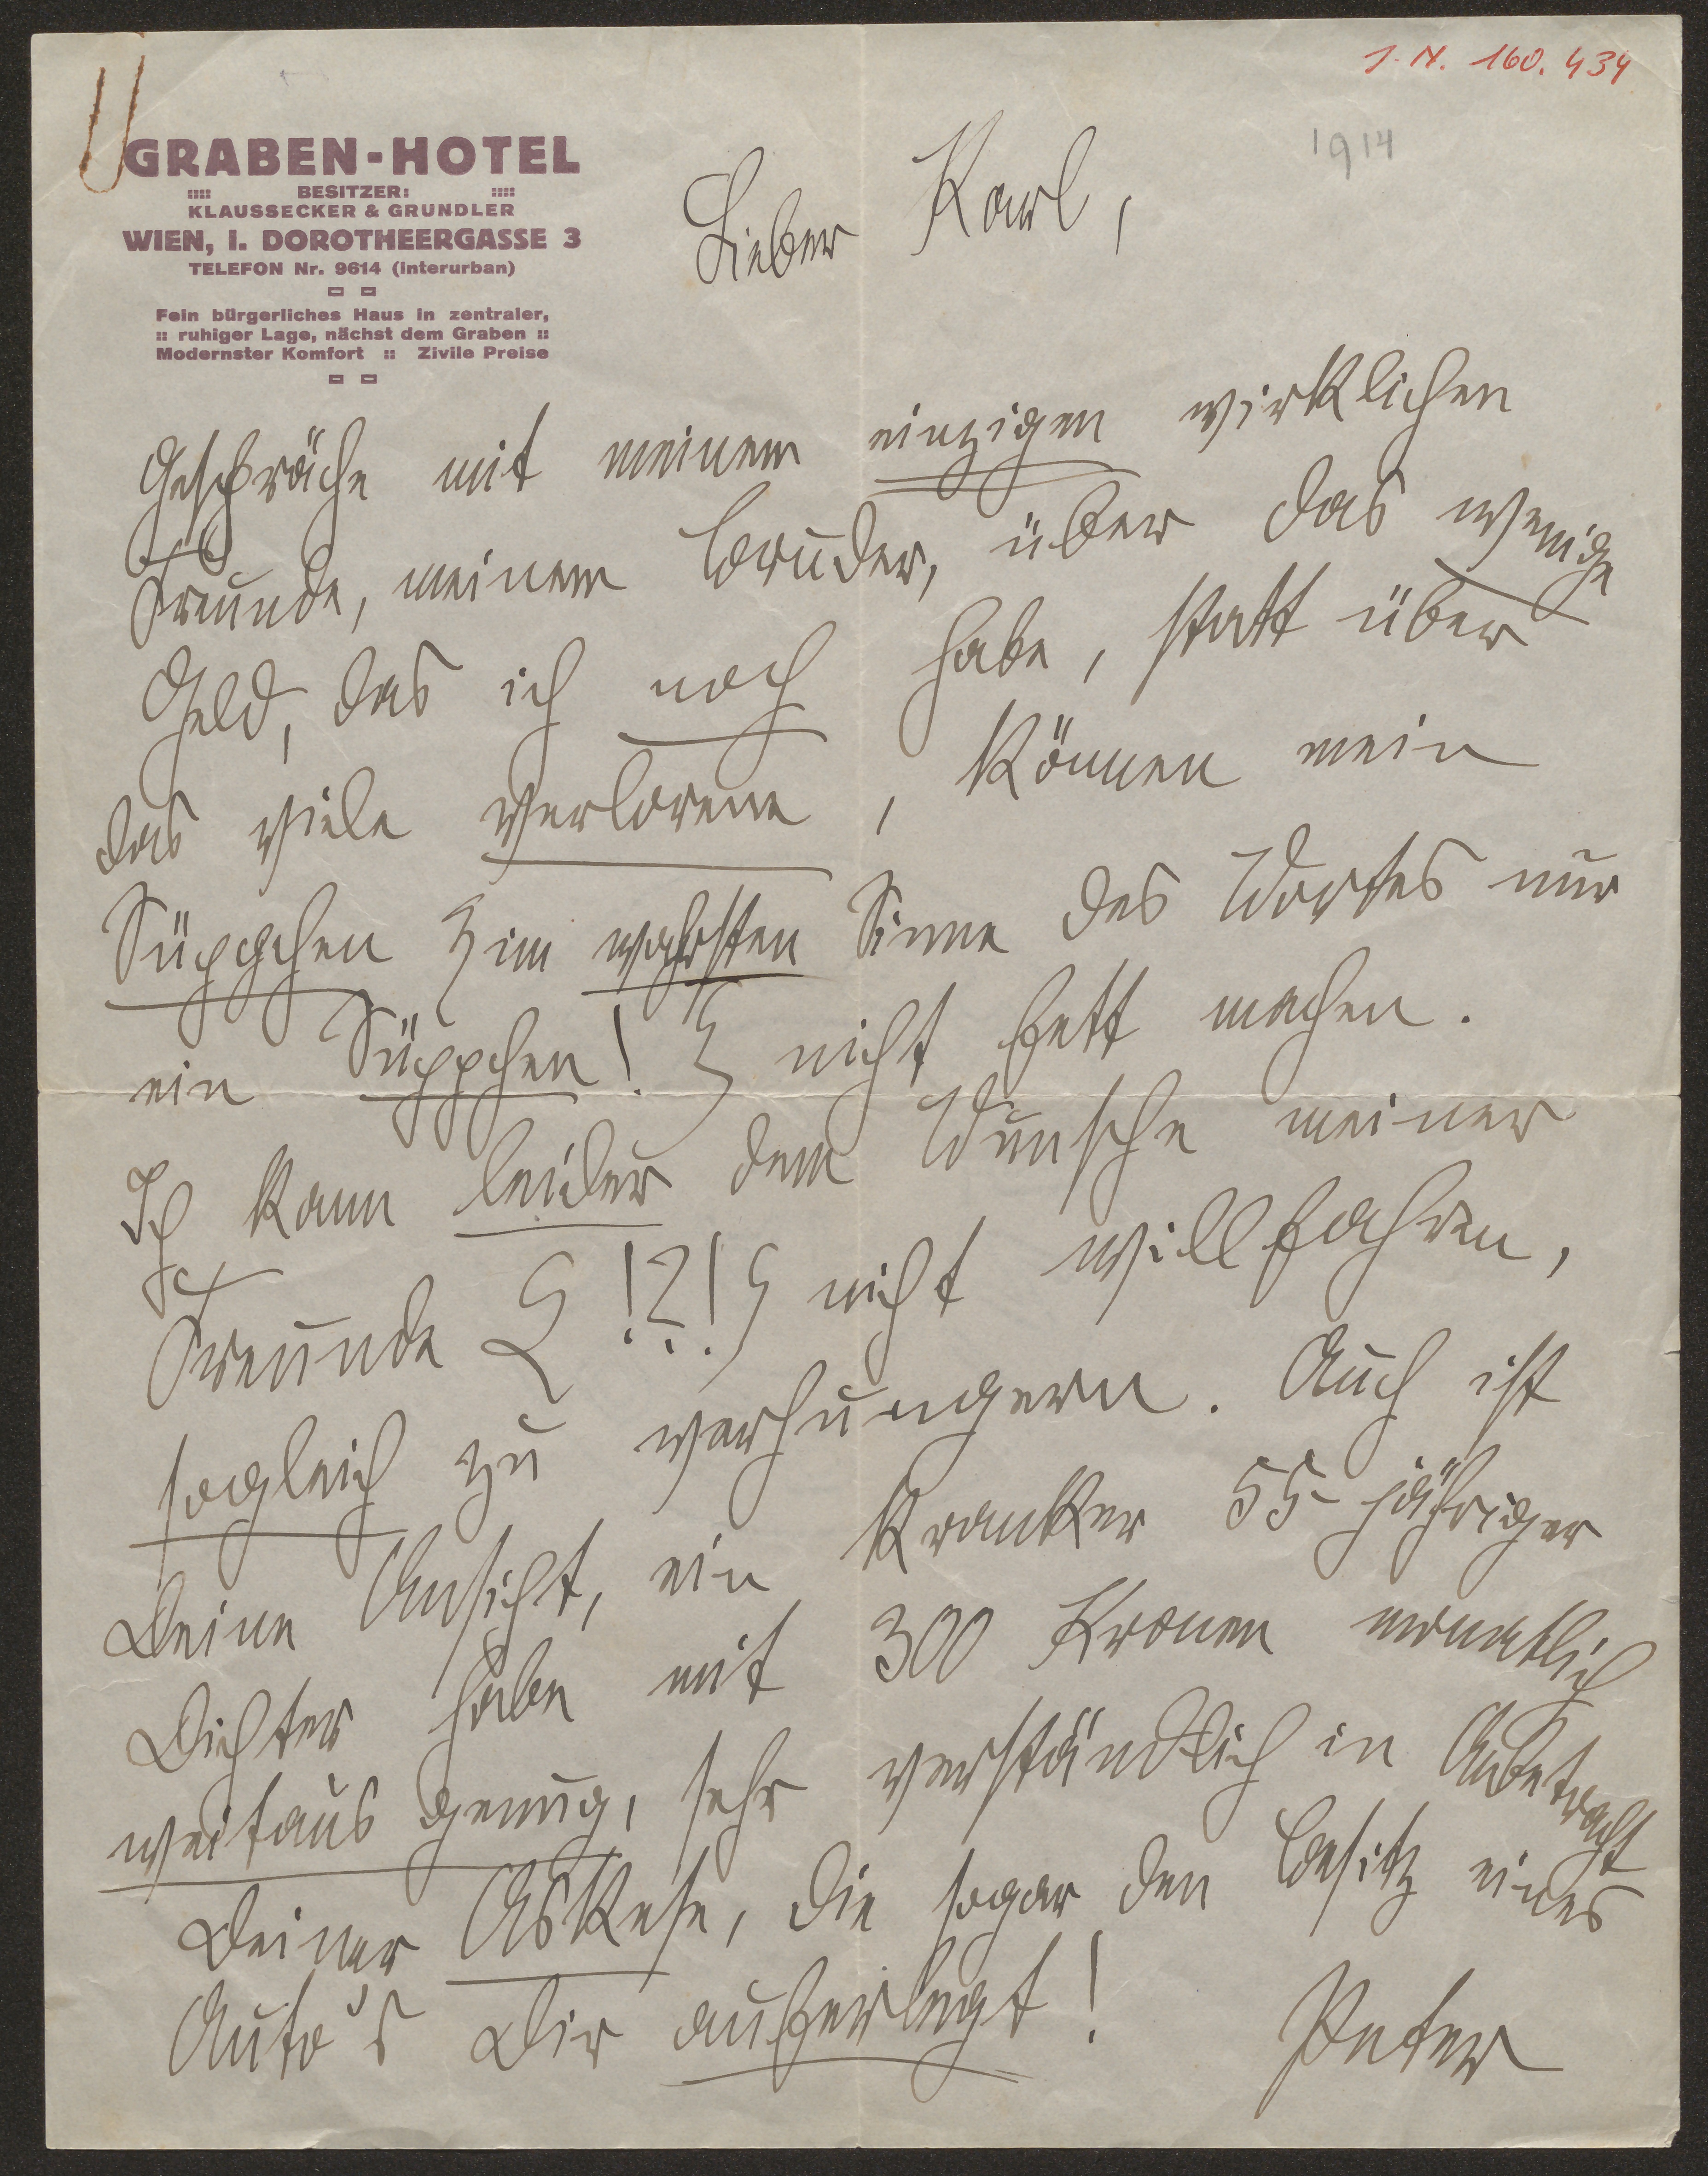 I. N. 160.434
1914
GRABEN-HOTEL
:::: BESITZER: ::::
KLAUSSECKER & GRUNDLER
WIEN, I. DOROTHEERGASSE 3
TELEFON Nr. 9614 (Interurban)
Fein bürgerliches Haus in zentraler,
:: ruhiger Lage, nächst dem Graben ::
Modernster Komfort :: Zivile Preise
Lieber Karl,
Gespräche mit meinem einzigen wirklichen
Freunde, meinem Bruder, über das wenige
Geld, das ich noch habe, statt über
das viele verlorene, können mein
Süppchen (im wahrsten Sinne des Wortes nur
ein Süppchen!) nicht fett machen.
Ich kann leider dem Wunsche meiner
Freunde (!?!) nicht willfahren,
sogleich zu verhungern. Auch ist
Deine Ansicht, ein kranker 55-jähriger
Dichter habe mit 300 Kronen monatlich
weitaus genug, sehr verständlich in Anbetracht
Deiner Askese, die sogar den Besitz eines
Auto's Dir auferlegt!
Peter